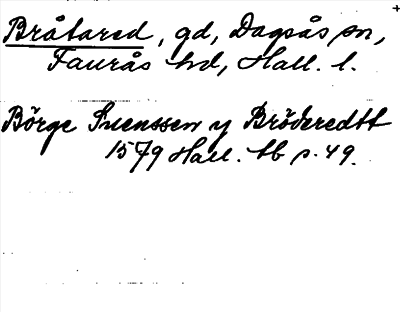 Bråtared, gd, Dagsås sn,
Faurås hd, Hall. l.
Börge Suenssen y Bröderedtt
1579 Hall. tb s. 49.